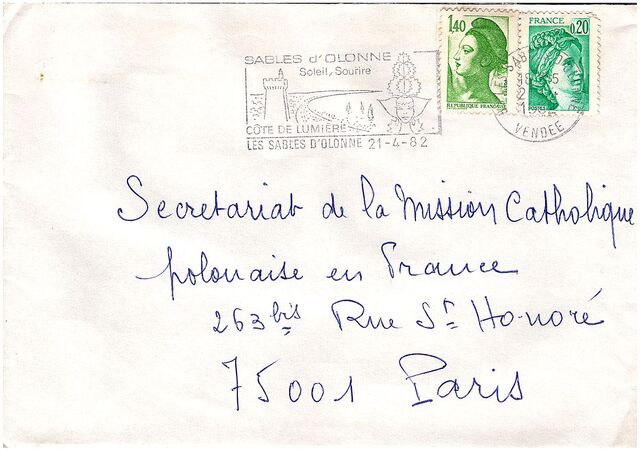 SABLES d'OLONNE
Soleil, Sourire
CÔTE DE LUMIÈRE
LES SABLES D'OLONNE 21-4-82
1,40
REPUBLIQUE FRANÇAISE
FRANCE
0,20
POSTES
VENDEE
Secretariat de la Mission Catholique
polonaise en France
263 bis Rue St Honoré
75001 Paris